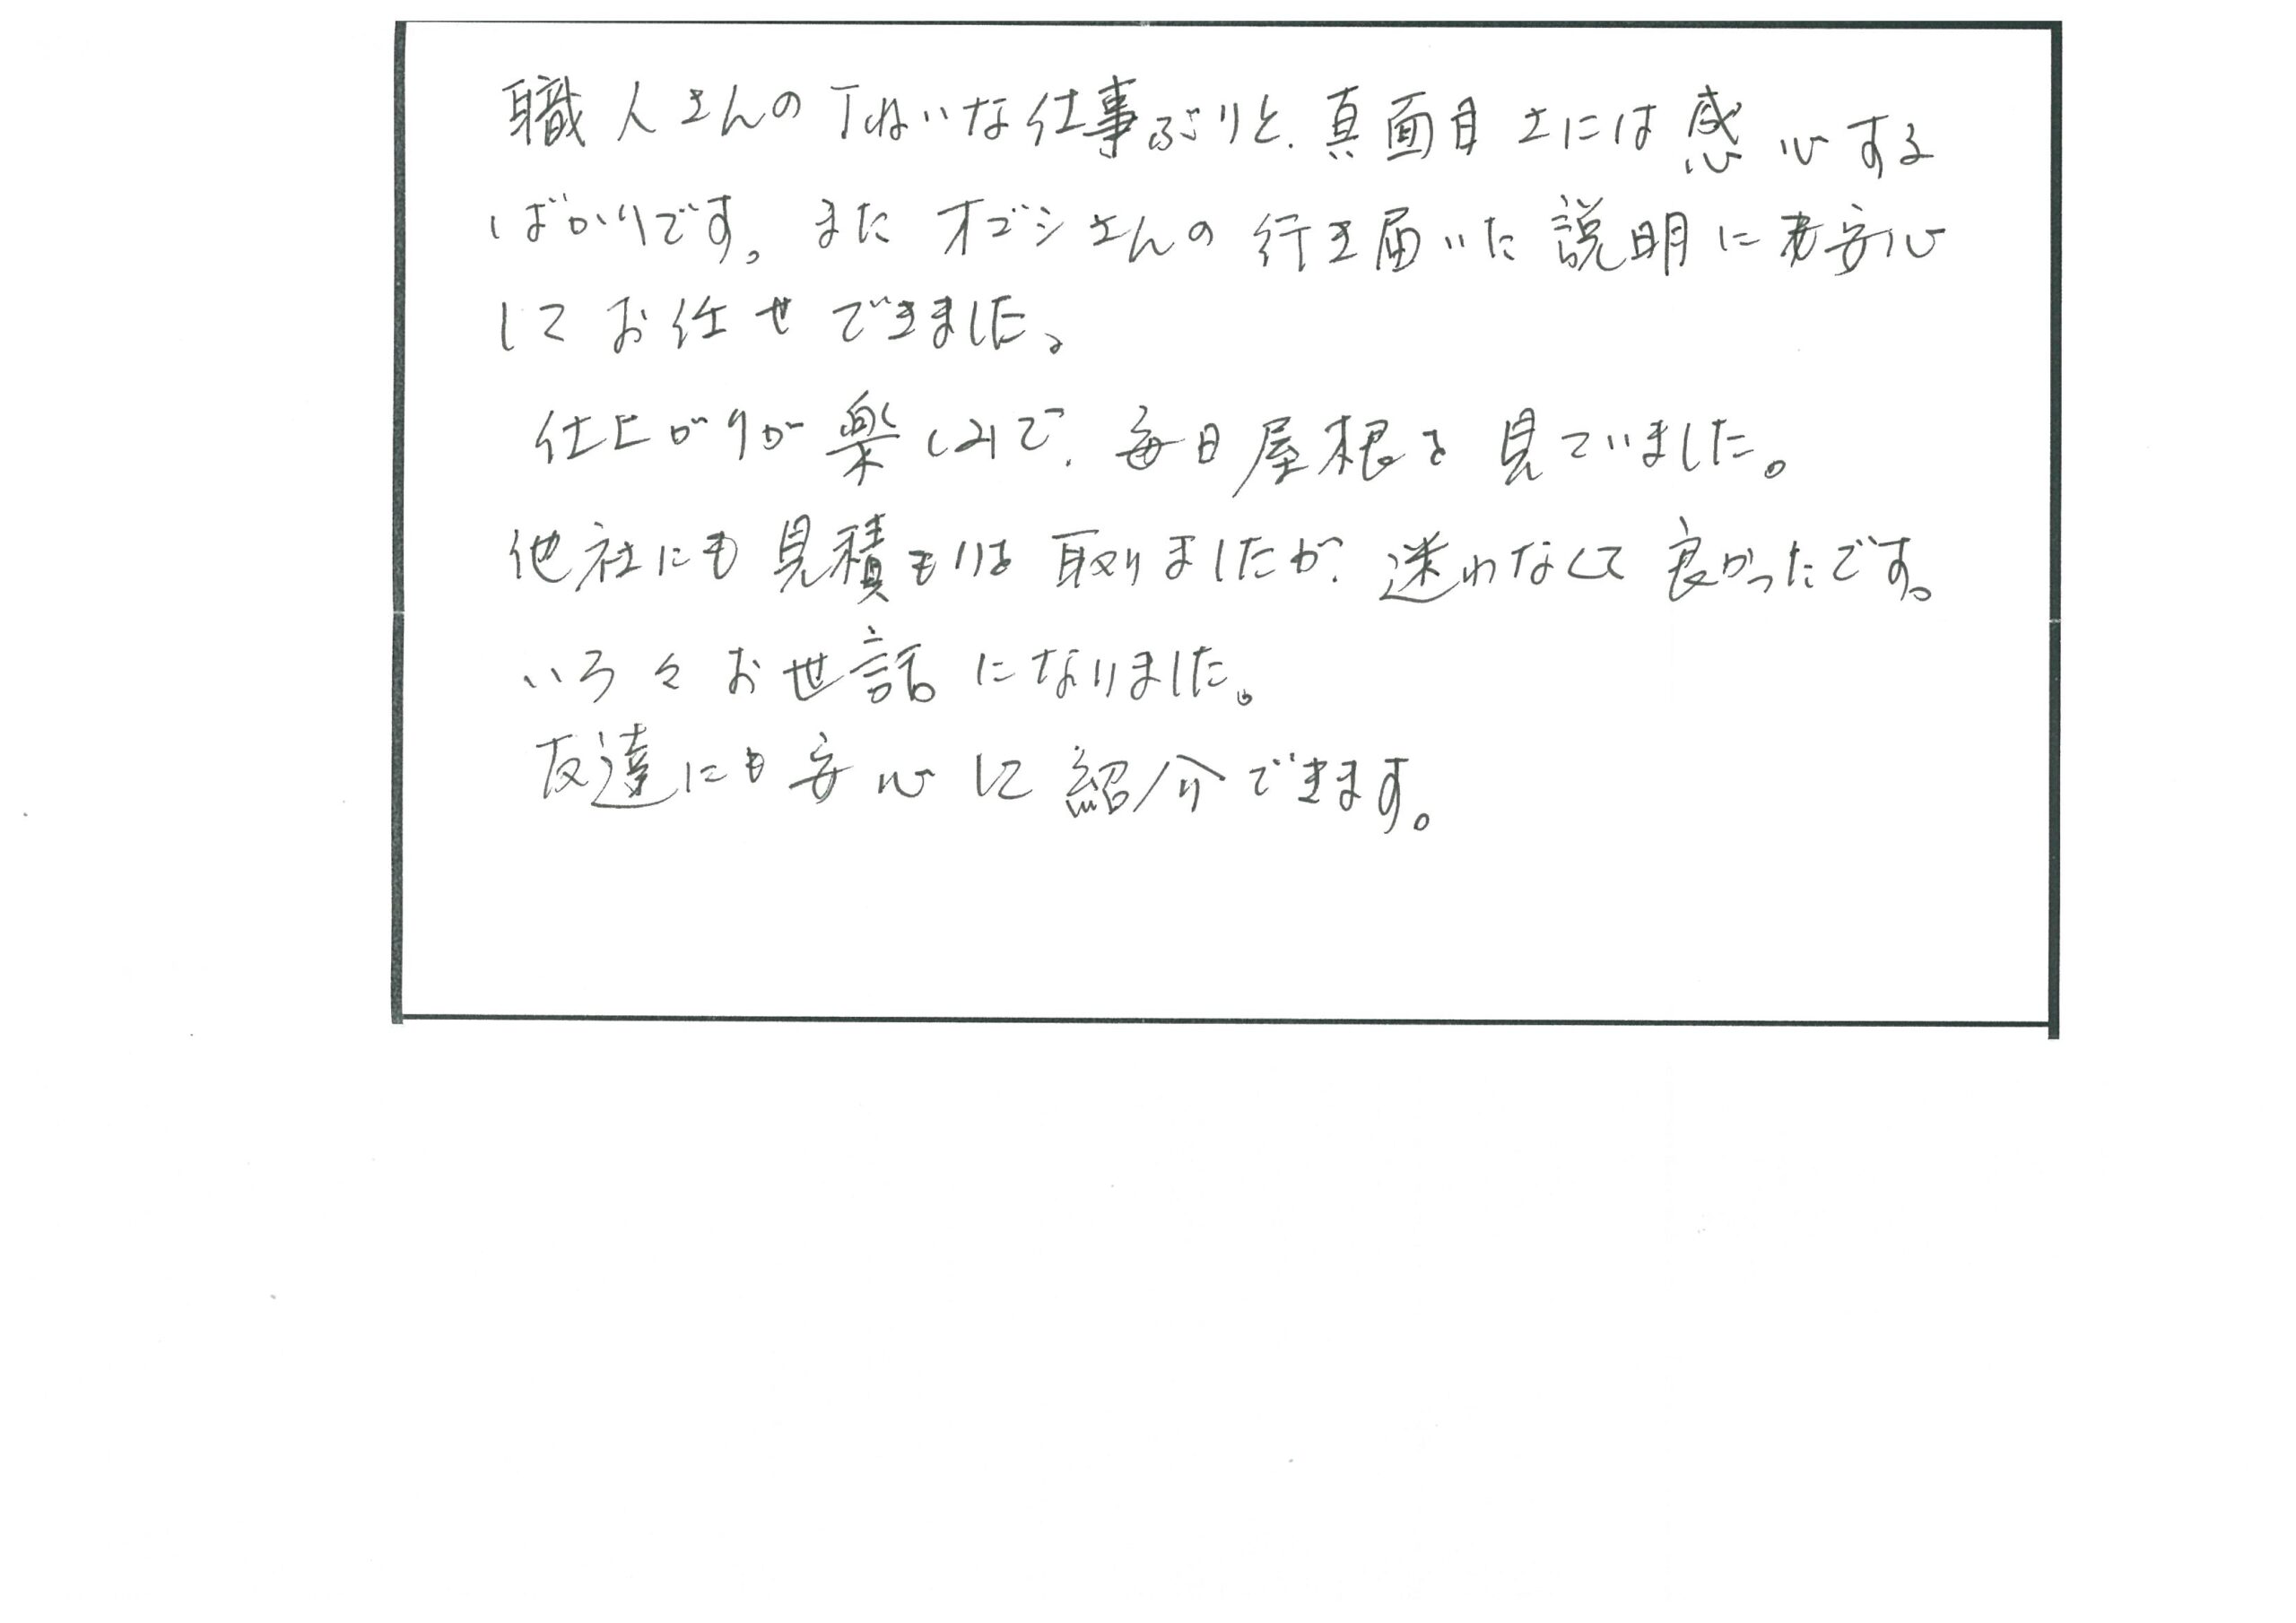 職人さんの丁ねいな仕事ぶりと、真面目さには感心する
ばかりです。また オゴシさんの行き届いた説明にも安心
してお任せできました。
仕上がりが楽しみで、毎日屋根を見ていました。
他社にも見積もりは取りましたが、迷わなくて良かったです。
いろ々お世話になりました。
友達にも安心して紹介できます。